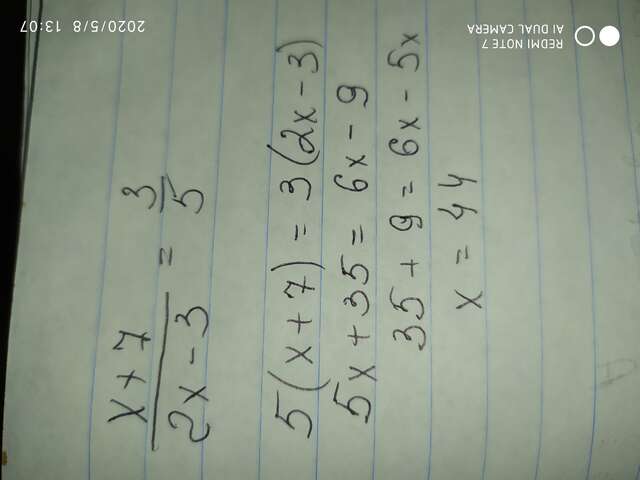 x + 7 / 2x - 3 = 3 / 5
5(x + 7) = 3(2x - 3)
5x + 35 = 6x - 9
35 + 9 = 6x - 5x
x = 44
REDMI NOTE 7
AI DUAL CAMERA
2020/5/8 13:07